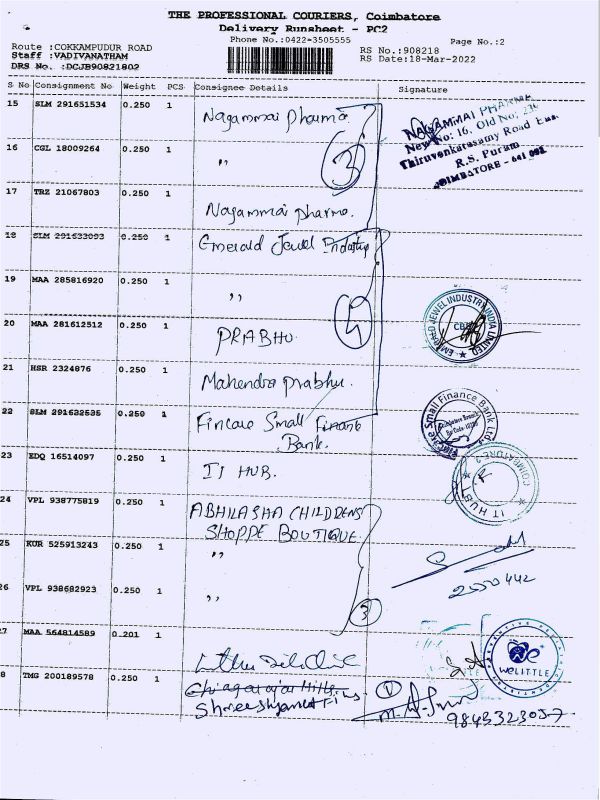 THE PROFESSIONAL COURIERS, Coimbatore
Delivery Runsheet - PC2
Phone No.:0422-3505555
Page No.:2
Route :COKKAMPUDUR ROAD
Staff :VADIVANATHAM
RS No.:908218
DRS No. :DCJB90821802
RS Date:18-Mar-2022
S No Consignment No Weight PCS Consignee Details Signature
15 SLM 291651534 0.250 1 Nagammai Pharma
NAGAMMAI PHARMA
New No: 16, Old No: 236
Thiruvenkatasamy Road East
R.S. Puram
COIMBATORE - 641 002
16 CGL 18009264 0.250 1 "
3
17 TRZ 21067803 0.250 1 Nagammai pharma.
18 SLM 291633093 0.250 1 Emerald Jewel Industry
19 MAA 285816920 0.250 1 ,,
EMERALD JEWEL INDUSTRY INDIA LIMITED
20 MAA 281612512 0.250 1 PRABHU
21 HSR 2324876 0.250 1 Mahendra prabhu.
22 SLM 291632535 0.250 1 Fincare Small Finance
Bank.
Fincare Small Finance Bank Ltd
23 EDQ 16514097 0.250 1 IT HUB.
IT HUB
COIMBATORE-2
24 VPL 938775819 0.250 1 ABHILASHA CHILDRENS
SHOPPE BOUTIQUE
25 KUR 525913243 0.250 1 ,,
2550442
26 VPL 938682923 0.250 1 ,,
3
27 MAA 564814589 0.201 1
WELITTLE
28 TMG 200189578 0.250 1
1
9843323057